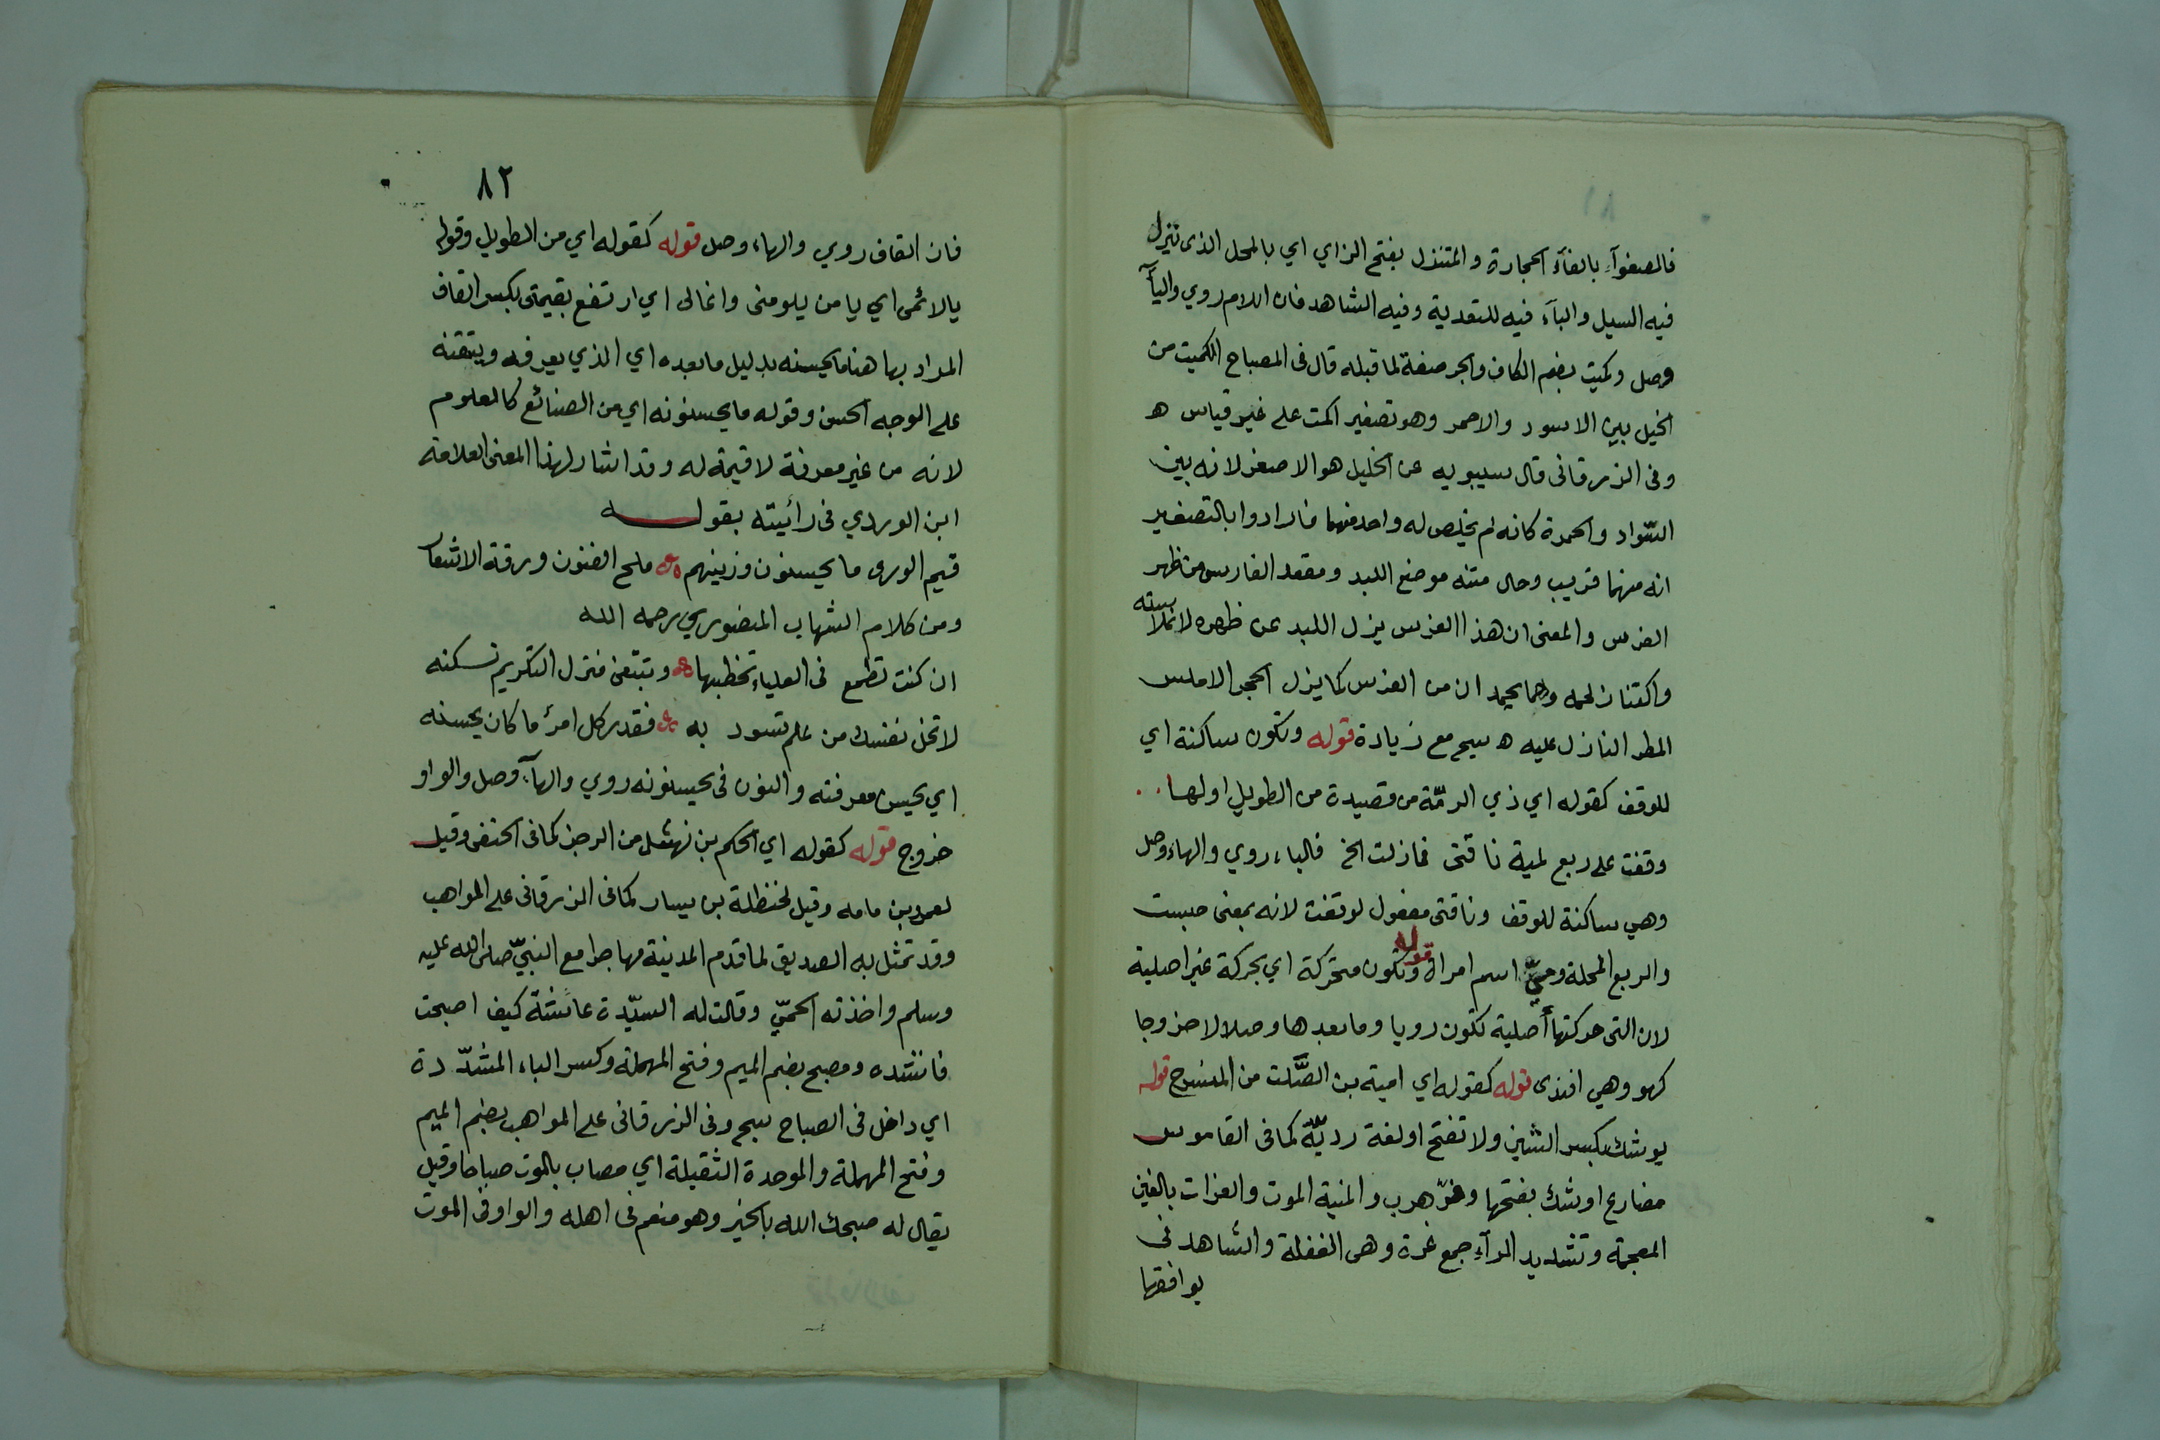 فالصفوآء بالفآء الحجارة والمتنزل بفتح الزاي اي بالمحل الذى تنزل
فيه السيل والبآء فيه للتعدية وفيه الشاهد فان اللام روي واليآء
وصل وكميت بضم الكاف والجر صفة لما قبله قال فى المصباح الكميت من
الخيل بين الاسود والاحمر وهو تصغير اكمت على غير قياس ه
وفى الزرقانى قال سيبويه عن الخليل هو الا صغر لانه بين
السّواد والحمرة كانه لم يخلص له واحد منهما فارادوا بالتصغير
انه منهما قريب وحال متنه موضع اللبد ومقعد الفارس من ظهر
الفرس والمعنى ان هذا الفرس يزل اللبد عن ظهره لانملاسته
واكتناز لحمه وهما يحمد ان من الفرس كما يزل الحجر الاملس
المطر النازل عليه ه سيح مع زيادة قوله وتكون ساكنة اي
للوقف كقوله اي ذي الرمّة من قصيدة من الطويل اولها
وقفت على ربع لمية ناقتى فمازلت الخ فالباء روي والهاء وصل
وهي ساكنة للوقف وناقتى مفعول لوقفت لانه بمعنى حبست
والربع المحلة وميّ اسم امراة قوله وتكون متحركة اي بحركة غير اصلية
لان التى حركتها أصلية تكون رويا وما بعدها وصلا لا خروجا
كهو وهي افندى قوله كقوله اي امية بن الصَّلت من المنسرح قوله
يوشك بكسر الشين ولا تفتح او لغة رديّة كما فى القاموس
مضارع اوشك بفتحها وفرّ هرب والمنية الموت والغرات بالغين
المعجمة وتشديد الرآء جمع غرة وهى الغفلة والشاهد فى
يوافقها
٨٢
فان القاف روي والهاء وصل قوله كقوله اي من الطويل وقوله
يا لائمى اي يا من يلومنى واغالى اي ارتفع بقيمتى بكسر القاف
المراد بها هنا ما يحسنه بدليل ما بعده اي الذي يعرفه ويتقنه
على الوجه الحسن وقوله ما يحسنونه اي من الصنائع كالعلوم
لانه من غير معرفة لا قيمة له وقد اشار لهذا المعنى العلامة
ابن الوردي فى رائيته بقوله
قيم الورى ما يحسنون وزينهم ملح الفنون ورقة الاشعار
ومن كلام الشهاب المنصوري رحمه الله
ان كنت تطمع فى العلياء تخطبها وتبتغى منزل التكريم تسكنه
لا تخل نفسك من علم تسود به فقدر كل امرئ ما كان يحسنه
اي يحسن معرفته والنون فى يحسنونه روي والهآء وصل والواو
خروج قوله كقوله اي الحكم بن نهشل من الرجز كما فى الحنفى وقيل
لعمرو بن مامه وقيل لحنظلة بن يسار كما فى الزرقانى على المواهب
وقد تمثل به الصديق لما قدم المدينة مهاجرا مع النبيّ صلى الله عليه
وسلم واخذته الحمّى وقالت له السيّدة عائشة كيف اصبحت
فانشده ومصبح بضم الميم وفتح المهملة وكسر الباء المشدّدة
اي داخل فى الصباح سيح وفى الزرقانى على المواهب بضم الميم
وفتح المهملة والموحدة الثقيلة اي مصاب بالموت صباحا وقيل
يقال له صبحك الله بالخير وهو منعم فى اهله والواو فى الموت